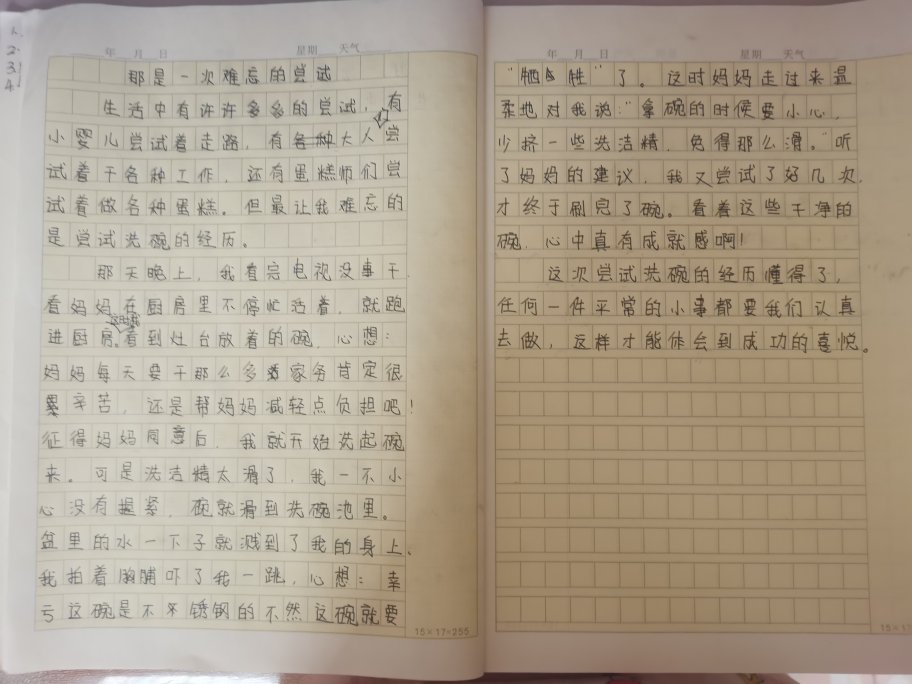 1.
2.
3.
4.
年 月 日 星期 天气
那是一次难忘的尝试
生活中有许许多多的尝试，有
小婴儿尝试着走路，有各种大人尝
试着干各种工作，还有蛋糕师们尝
试着做各种蛋糕。但最让我难忘的
是尝试洗碗的经历。
那天晚上，我看完电视没事干，
看妈妈在厨房里不停忙活着，就跑
进厨房。这时我看到灶台放着的碗，心想：
妈妈每天要干那么多家务肯定很
累辛苦，还是帮妈妈减轻点负担吧！
征得妈妈同意后，我就开始洗起碗
来。可是洗洁精太滑了，我一不小
心没有握紧，碗就滑到洗碗池里。
盆里的水一下子就溅到了我的身上、
我拍着胸脯吓了我一跳，心想：幸
亏这碗是不锈钢的不然这碗就要
15×17=255
年 月 日 星期 天气
“牺牲”了。这时妈妈走过来温
柔地对我说：“拿碗的时候要小心，
少挤一些洗洁精，免得那么滑。”听
了妈妈的建议，我又尝试了好几次，
才终于刷完了碗。看着这些干净的
碗，心中真有成就感啊！
这次尝试洗碗的经历懂得了，
任何一件平常的小事都要我们认真
去做，这样才能体会到成功的喜悦。
15×17